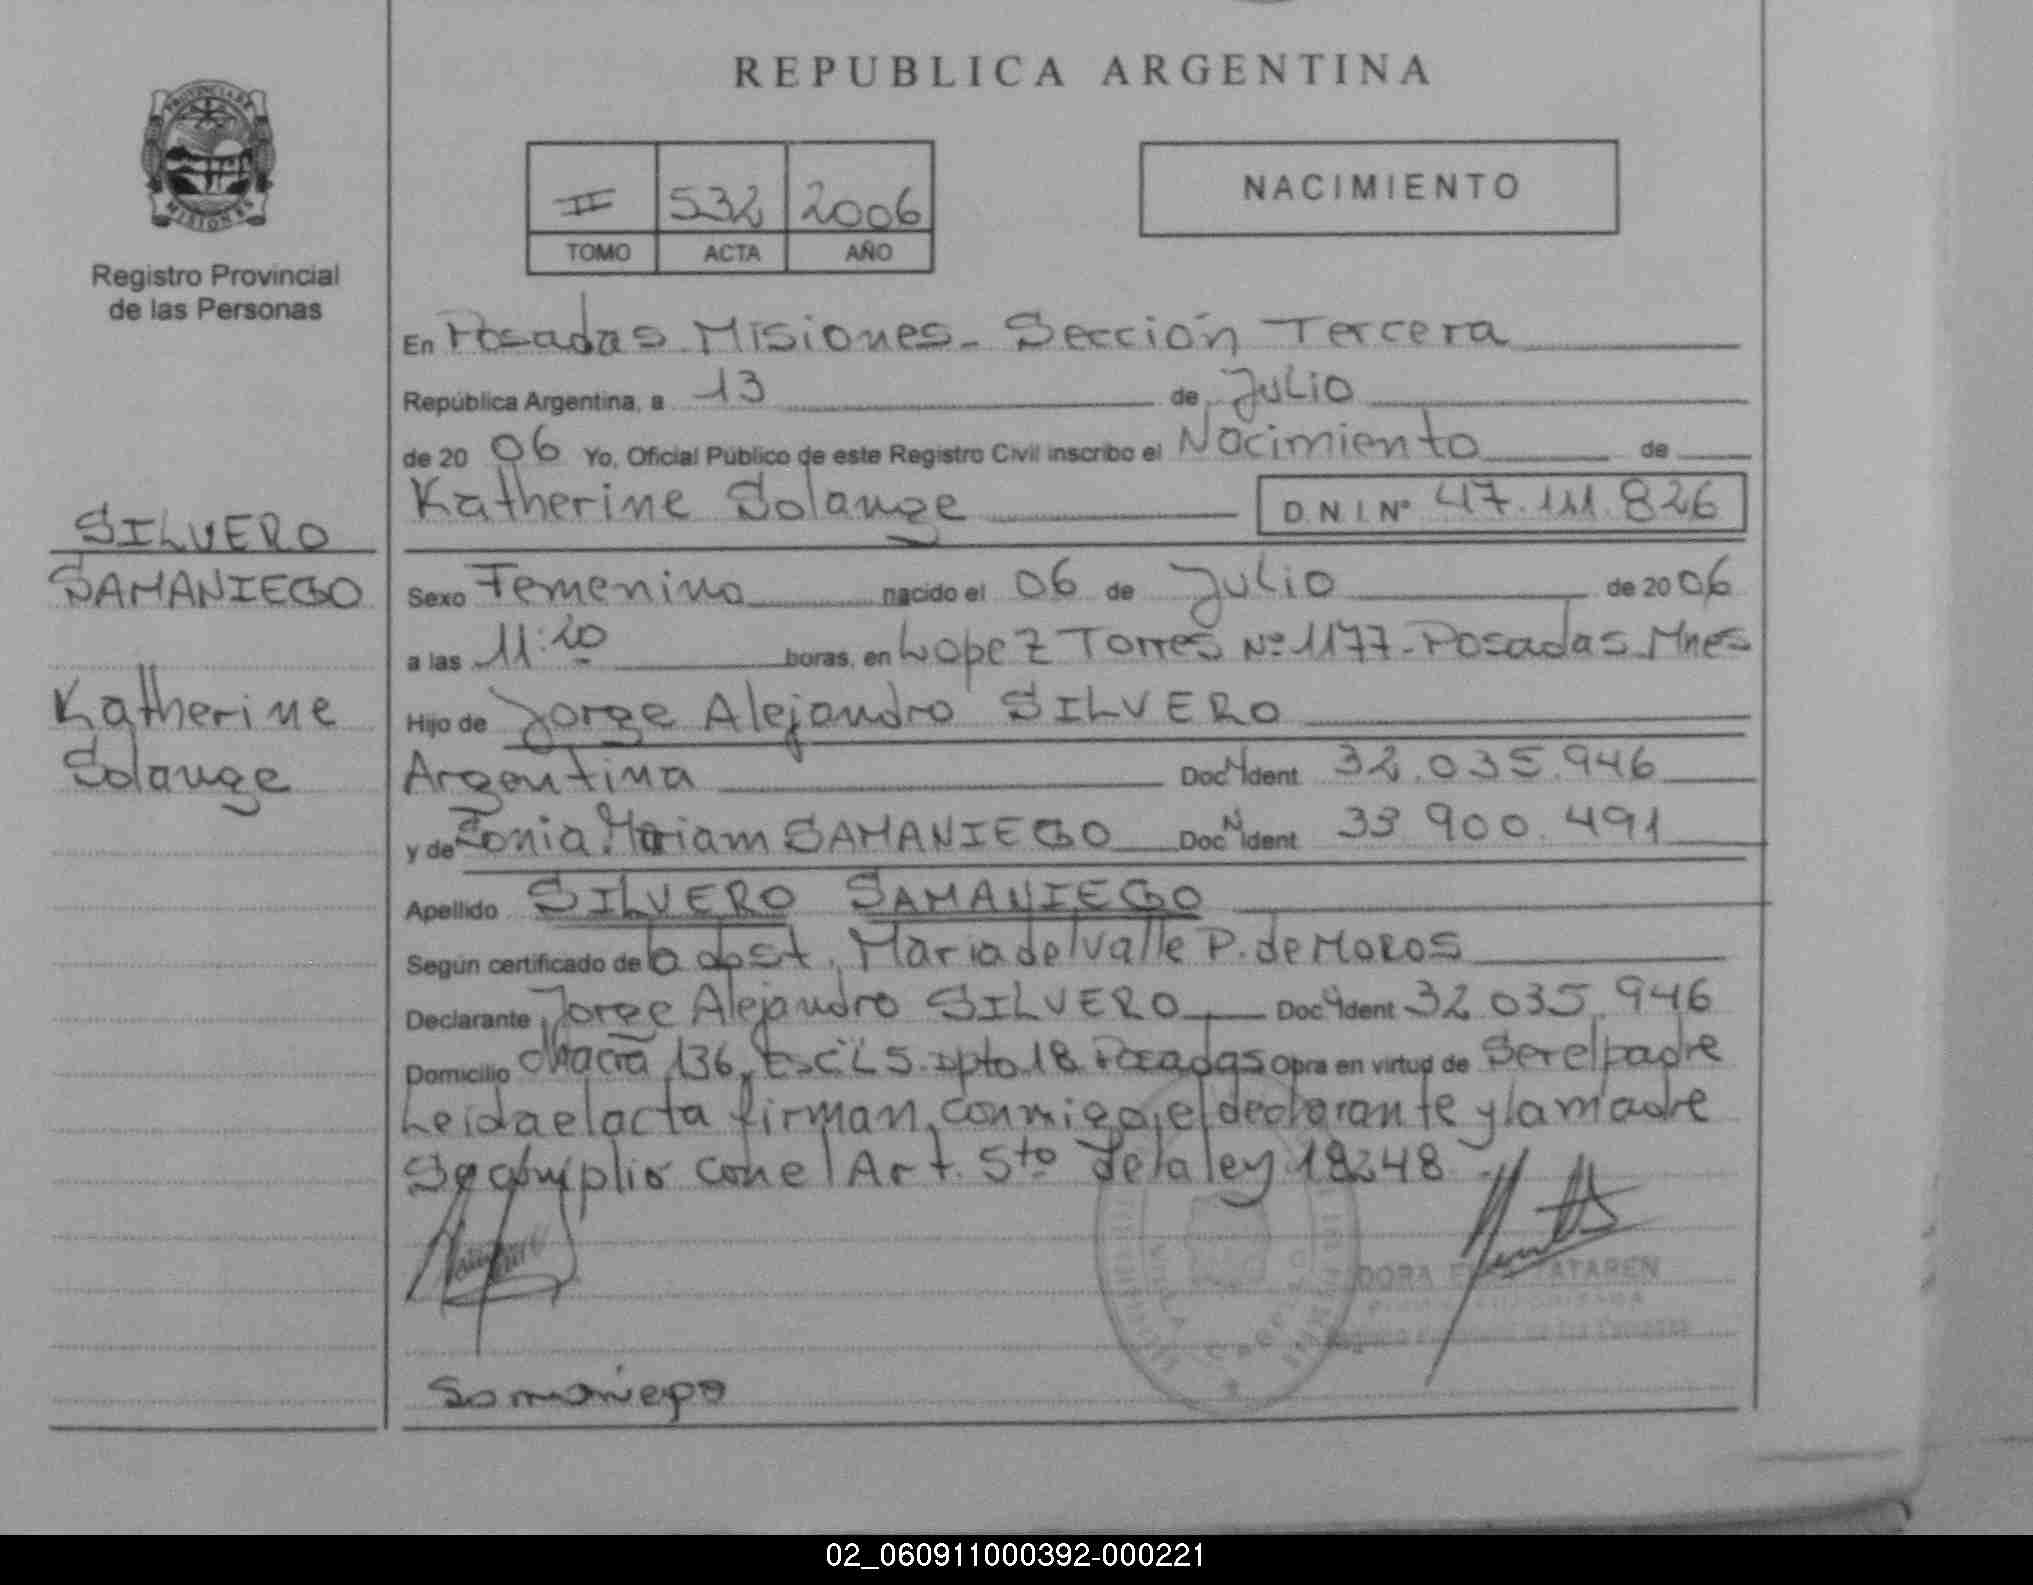 REPUBLICA ARGENTINA
PROVINCIA DE
MISIONES
Registro Provincial
de las Personas
II 532 2006
TOMO ACTA AÑO
NACIMIENTO
En Posadas Misiones - Sección Tercera
República Argentina, a 13 de Julio
de 20 06 Yo, Oficial Público de este Registro Civil inscribo el Nacimiento de
Katherine Solange D.N.I. Nº 47.111.826
SILVERO
SAMANIEGO
Katherine
Solange
Sexo Femenino nacido el 06 de Julio de 20 06
a las 11:20 horas, en Lopez Torres Nº 1177 - Posadas Mnes
Hijo de Jorge Alejandro SILVERO
Argentina Doc Ident 32.035.946
y de Mariam SAMANIEGO Doc N Ident 33 900.491
Apellido SILVERO SAMANIEGO
Según certificado de la obst. Maria del valle P. de MOROS
Declarante Jorge Alejandro SILVERO Doc Ident 32 035.946
Domicilio chacra 136, Esc L 5 Dpto 18 Posadas Obra en virtud de Ser el padre
Leida el acta firman conmigo el declarante y la madre
Se cumplio con el Art. 5to de la ley 18248
DORA TATAREN
Samaniego
02_060911000392-000221